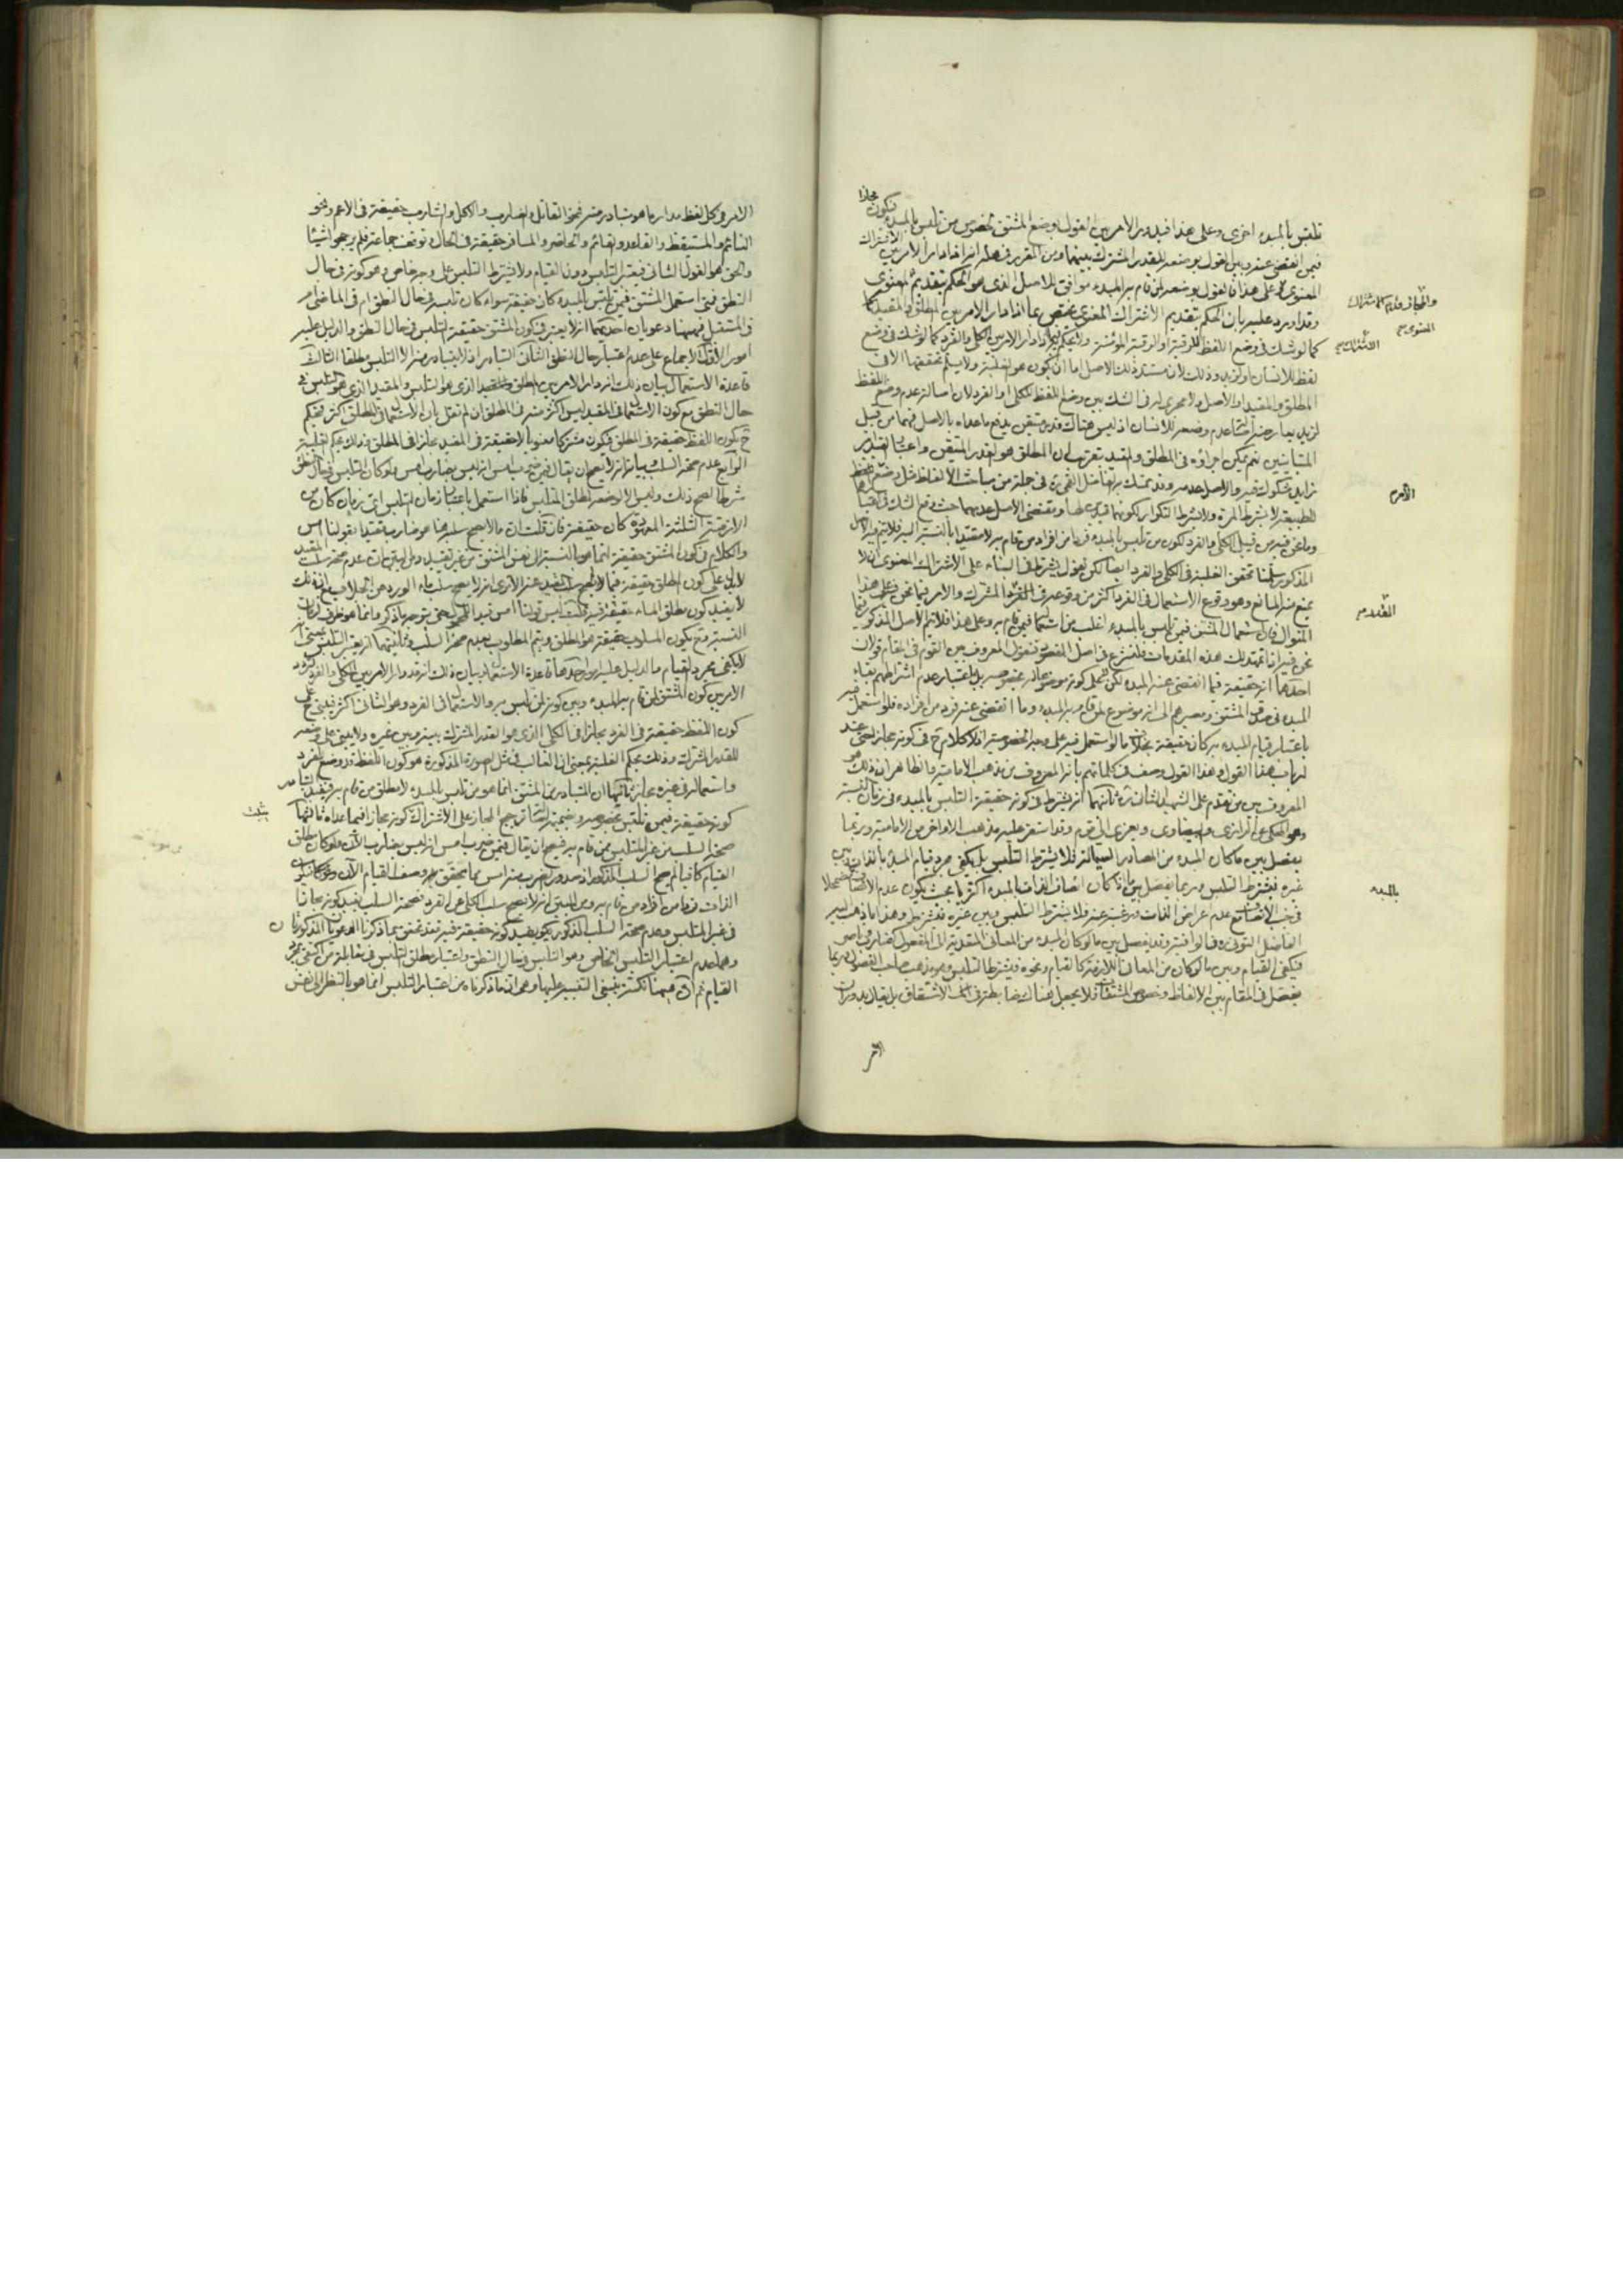 تلبس بالمبدء اخرى وعلى هذا فيدور الامر بين القول بوضع المشتق لخصوص من تلبس بالمبدء فيكون مجازا
فيمن انقضى عنه وبين القول بوضعه للقدر المشترك بينهما ومن المقرر في محله انه اذا دار الامر بين الاشتراك
المعنوى وعلى هذا فالقول بوضعه لمن قام به المبدء موافق للاصل الذى هو الحكم بتقديم المعنوى
وقد اورد عليه بان الحكم بتقديم الاشتراك المعنوى يختص بما اذا دار الامر بين المطلق والمقيد
كما لو شك في وضع اللفظ للرقبة او الرقبة المؤمنة ولا يحكم فيما اذا دار الامر بين الكلى والفرد كما لو شك في وضع
لفظ للانسان او لزيد وذلك لان مستند ذلك الاصل اما ان يكون هو الغلبة ولا يسلم تحققها الا في
المطلق والمقيد او الاصل ولا مجرى له في الشك بين وضع اللفظ للكلى او الفرد لان اصالة عدم وضع اللفظ
لزيد يعارضه اصالة عدم وضعه للانسان اذ ليس هناك قدر متيقن يدفع ما عداه بالاصل فهما من قبيل
المتباينين نعم يمكن اجراؤه في المطلق والمقيد لان المطلق هو القدر المتيقن واعتبار القيد امر
زايد مشكوك فيه والاصل عدمه وقد تمسك به الفاضل القمى ره في جملة من مباحث الالفاظ مثل وضع الامر
للطبيعة لا بشرط المرة ولا بشرط التكرار لكونهما قيدين لها ومقتضى الاصل عدمهما حيث وقع الشك فيهما
وما نحن فيه من قبيل الكلى والفرد لكون من تلبس بالمبدء فردا من افراد من قام به لا مقيدا بالنسبة اليه فلا يتم الاصل
المذكور سلمنا تحقق الغلبة في الكلى والفرد ايضا لكن نقول يشترط في البناء على الاشتراك المعنوى ان لا
يمنع منه المانع وهو وقوع الاستعمال في الفرد اكثر من وقوعه في القدر المشترك والامر فيما نحن فيه على هذا
المنوال فان استعمال المشتق فيمن تلبس بالمبدء اغلب من استعماله فيمن قام به وعلى هذا فلا يتم الاصل المذكور فيما
نحن فيه اذا تمهدت لك هذه المقدمات فلنشرع في اصل المقصود فنقول المعروف بين القوم في المقام قولان
احدهما انه حقيقة فيما انقضى عنه المبدء لكن لا على كونه موضوعا له بخصوصه بل باعتبار عدم اشتراطهم بقاء
المبدء في صدق المشتق ومصيرهم الى انه موضوع لمن قام به المبدء وما انقضى عنه فرد من افراده فلو استعمل فيه
باعتبار قيام المبدء به كان حقيقة بخلاف ما لو استعمل فيه على وجه الخصوصية اذ لا كلام ح في كونه مجازا حتى عند
ارباب هذا القول وهذا القول وصف في كلماتهم بانه المعروف من مذهب الامامية والظاهر ان ذلك هو
المعروف بين من تقدم على الشهيد الثانى ره ثانيهما انه يشترط في كونه حقيقة التلبس بالمبدء في زمان النسبة
وهو المحكى عن الرازى والبيضاوى ويعزى الى قوم وقد استقر عليه مذهب الاواخر من الامامية وربما
يفصل بين ما كان المبدء من المصادر السيالة فلا يشترط التلبس بل يكفى مجرد قيام المبدء بالذات وبين
غيره فيشترط التلبس وربما يفصل بين ما اذا كان اتصاف الذات بالمبدء اكثريا بحيث يكون عدم الاتصاف مضمحلا
في جنب الاتصاف مع عدم اعراض الذات ورغبته عنه فلا يشترط التلبس وبين غيره فيشترط وهذا ما ذهب اليه
الفاضل التونى ره في الوافية وقد يفصل بين ما لو كان المبدء من المعانى المتعدية الى المفعول كضارب وناصر
فيكفى القيام وبين ما لو كان من المعانى اللازمة كالقيام ونحوه فيشترط التلبس وهو مذهب صاحب الفصول وربما
يفصل في المقام بين الالفاظ وخصوص المشتقات فلا يجعل هناك ضابطة في الاشتقاق بل يقال بدوران
الامر
والمجاز قدم الاشتراك المعنوى صح
الاشتراك صح
الامر
القدر
بالمبدء
الامر في كل لفظ مدار ما هو متبادر منه فنحو القاتل والضارب والآكل والشارب حقيقة في الاعم ونحو
النائم والمستيقظ والقاعد والقائم والحاضر والمسافر حقيقة في الحال وتوقف جماعة فلم يرجحوا شيئا
والحق هو القول الثانى فيعتبر التلبس دون القيام ولا يشترط التلبس على وجه خاص وهو كونه في حال
النطق فمتى استعمل المشتق فيمن تلبس بالمبدء كان حقيقة سواء كان تلبسه في حال النطق ام في الماضى ام
في المستقبل فههنا دعويان احديهما انه لا يعتبر في كون المشتق حقيقة التلبس في حال النطق والدليل عليه
امور الاول الاجماع على عدم اعتبار حال النطق الثانى التبادر اذ لا يتبادر منه الا التلبس مطلقا الثالث
قاعدة الاستعمال بيان ذلك انه دار الامر بين المطلق والمقيد الذى هو التلبس والمقيد الذى هو التلبس في
حال النطق مع كون الاستعمال في المقيد ليس اكثر منه في المطلق ان لم نقل بان الاستعمال في المطلق اكثر فيحكم
ح بكون اللفظ حقيقة في المطلق فيكون مشتركا معنويا لا حقيقة في المقيد مجازا في المطلق وذلك بحكم الغلبة
الرابع عدم صحة السلب بيانه انه لا يصح ان يقال فيمن ضرب امس انه ليس بضارب امس فلو كان التلبس في حال النطق
شرطا لصح ذلك وليس الا لوضعه لمطلق المتلبس فاذا استعمل باعتبار زمان التلبس اى زمان كان من
الازمنة الثلثة المعهودة كان حقيقة فان قلت ان ما لا يصح سلبه هنا هو ضارب مقيدا بقولنا امس
والكلام في كون المشتق حقيقة انما هو بالنسبة الى نفس المشتق من غير تقييد ومن البين ان عدم صحة سلب المقيد
لا يدل على كون المطلق حقيقة فيما لا يصح سلب المقيد عنه الا ترى انه لا يصح سلب ماء الورد عن الجلاب مع ان ذلك
لا يفيد كون مطلق الماء حقيقة فيه قلت ليس قولنا امس قيدا للمحمول حتى يتوجه ما ذكر وانما هو ظرف لزمان
النسبة وح يكون المسلوب حقيقة هو المطلق ويتم المطلوب بعدم صحة السلب وثانيتهما انه يعتبر التلبس بمعنى انه
لا يكفى مجرد القيام والدليل عليه امور احدها قاعدة الاستعمال بيان ذلك انه قد دار الامر بين الكلى والفرد لتردد
الامر بين كون المشتق لمن قام به المبدء وبين كونه لمن تلبس به والاستعمال في الفرد وهو الثانى اكثر فيبنى ح على
كون اللفظ حقيقة في الفرد مجازا في الكلى الذى هو القدر المشترك بينه وبين غيره ولا يبنى على وضعه
للقدر المشترك وذلك بحكم الغلبة بمعنى ان الغالب في مثل الصورة المذكورة هو كون اللفظ قد وضع للفرد
واستعماله في غيره مجاز ثانيها ان المتبادر من المشتق انما هو من تلبس بالمبدء لا مطلق من قام به فيفيد التبادر
كونه حقيقة فيمن تلبس بخصوصه وبضميمة اصالة ترجيح المجاز على الاشتراك كونه مجازا فيما عداه ثالثها
صحة السلب عن غير المتلبس ممن قام به فيصح ان يقال فيمن ضرب امس انه ليس بضارب الآن ولو كان مطلق
القيام كافيا لم يصح السلب المذكور اذ صدور الضرب منه امس مما يحقق له وصف القيام الآن
الذات فردا من افراد من قام به ومن البين انه لا يصح سلب الكلى عن الفرد فصحة السلب يفيد كونه مجازا
في غير المتلبس وعدم صحة السلب المذكور يفيد كونه حقيقة فيه فقد تحقق بما ذكرنا الدعويان المذكورتان
وهما عدم اعتبار التلبس الخاص وهو التلبس في حال النطق واعتبار مطلق التلبس في مقابلة من اكتفى بمجرد
القيام ثم ان ههنا نكتة ينبغى التنبيه عليها وهى ان ما ذكرناه من اعتبار التلبس انما هو بالنظر الى نفس
يثبت